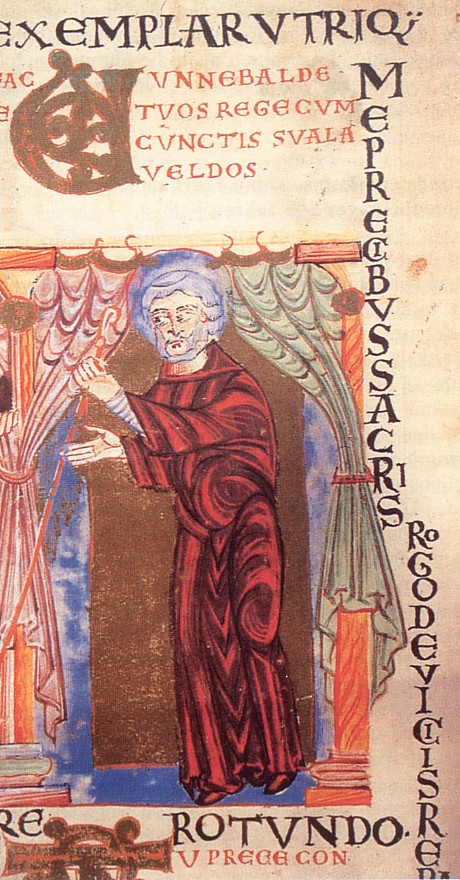 EXEMPLAR VTRIQ;
AC UNNEBALDE
E TVOS REGE CVM
CUNCTIS SVALA
VELDOS
ME PRECIBVS SACRIS
ROGO DEVICIIS RE
RE ROTVNDO.
U PREGE CON